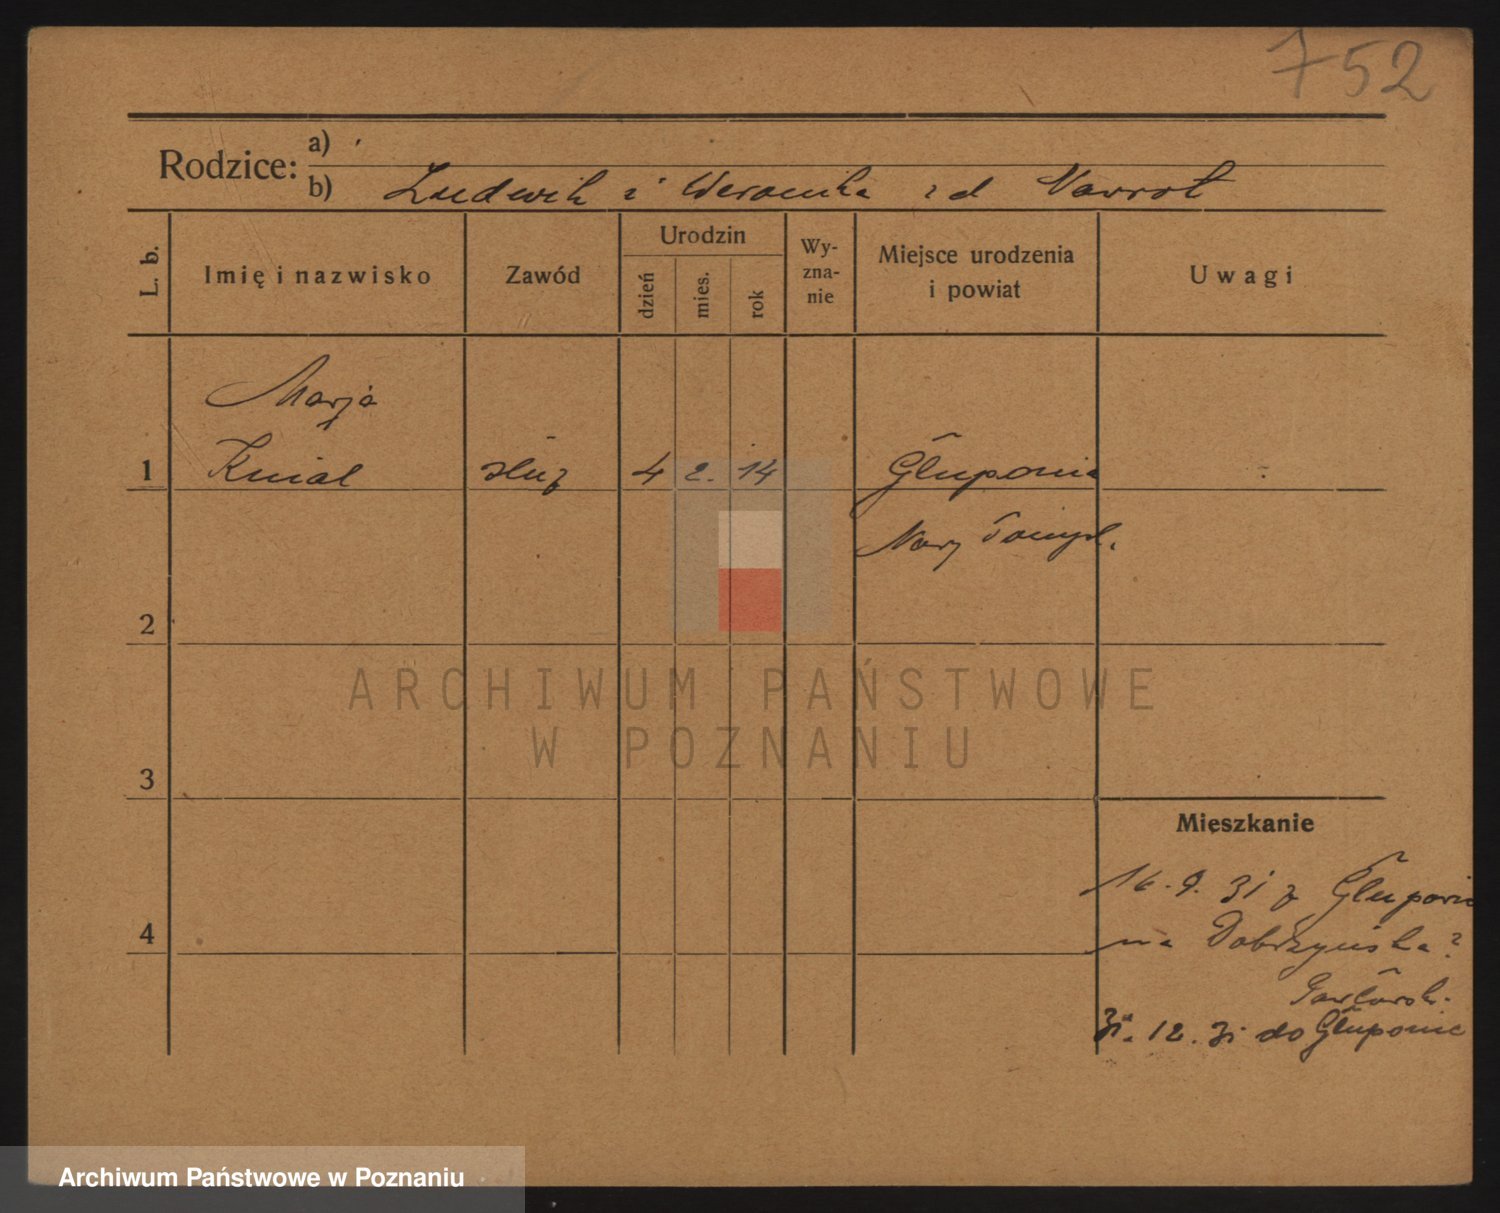 752
Rodzice: a)
b) Ludwik i Weronika zd Nawrot
L. b.
Imię i nazwisko
Zawód
Urodzin
dzień
mies.
rok
Wy-
zna-
nie
Miejsce urodzenia
i powiat
Uwagi
Marja
1 Kmiat służ 4 2. 14 Głuponie
Nowy Tomyśl.
2
3
4
Mieszkanie
16. 9. 31 z Głuponie
na Dobrzyńska 2
31. 12. 31 do Głuponie
ARCHIWUM PAŃSTWOWE
W POZNANIU
Archiwum Państwowe w Poznaniu